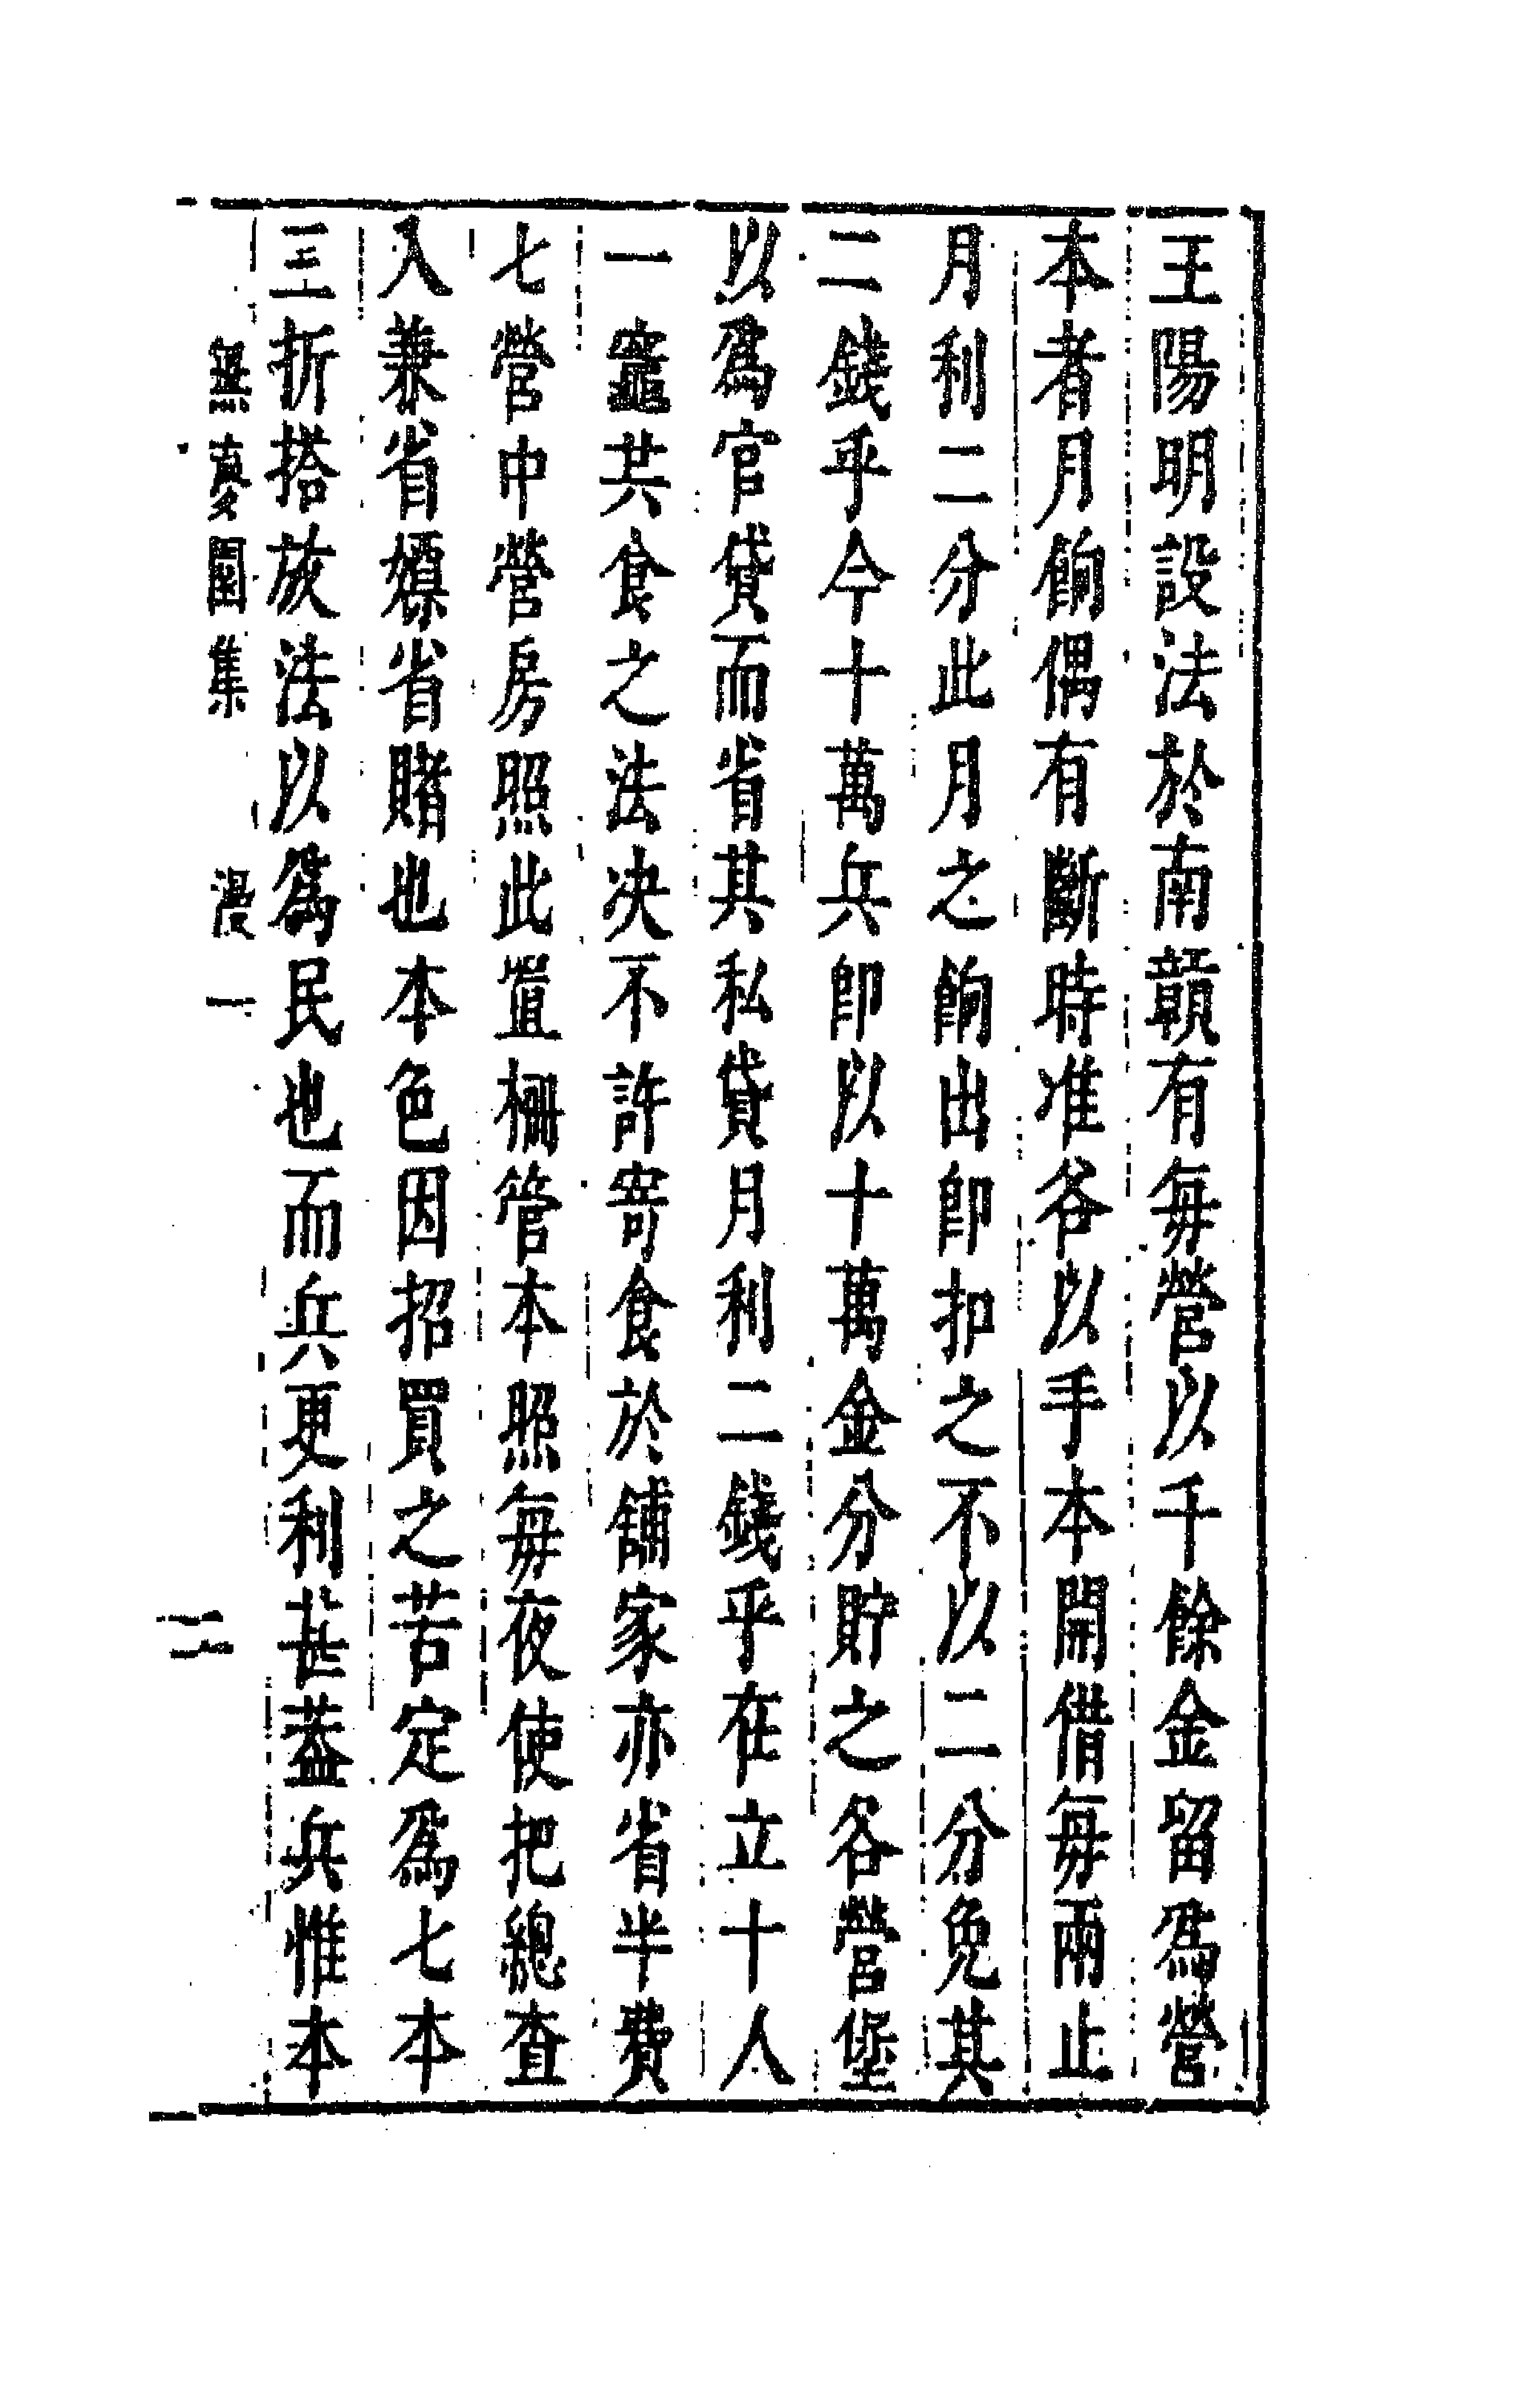 王陽明設法於南贛有每營以千餘金留爲營
本者月餉偶有斷時准各以手本開借每兩止
月利二分此月之餉出卽扣之不以二分免其
二錢乎今十萬兵卽以十萬金分貯之各營堡
以爲官貸而省其私貸月利二錢乎在立十人
一竈共食之法決不許寄食於舖家亦省半費
七營中營房照此置柵管本照每夜使把總查
入兼省嫖省賭也本色因招買之苦定爲七本
三折搭放法以爲民也而兵更利甚葢兵惟本
無夢園集 漫一 二